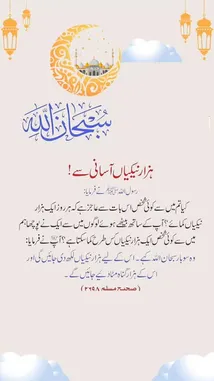 سُبْحَانَ اللّٰه
ہزار نیکیاں آسانی سے!
رسول اللہ ﷺ نے فرمایا:
کیا تم میں سے کوئی شخص اس بات سے عاجز ہے کہ ہر روز ایک ہزار
نیکیاں کمائے؟ آپ کے ساتھ بیٹھے ہوئے لوگوں میں سے ایک نے پوچھا: ہم
میں سے کوئی شخص ایک ہزار نیکیاں کس طرح کما سکتا ہے؟ آپؐ نے فرمایا:
وہ سو بار سبحان اللہ کہے۔ اس کے لیے ہزار نیکیاں لکھ دی جائیں گی اور
اس کے ہزار گناہ مٹا دیے جائیں گے۔
(صحیح مسلم ۲۶۹۸)